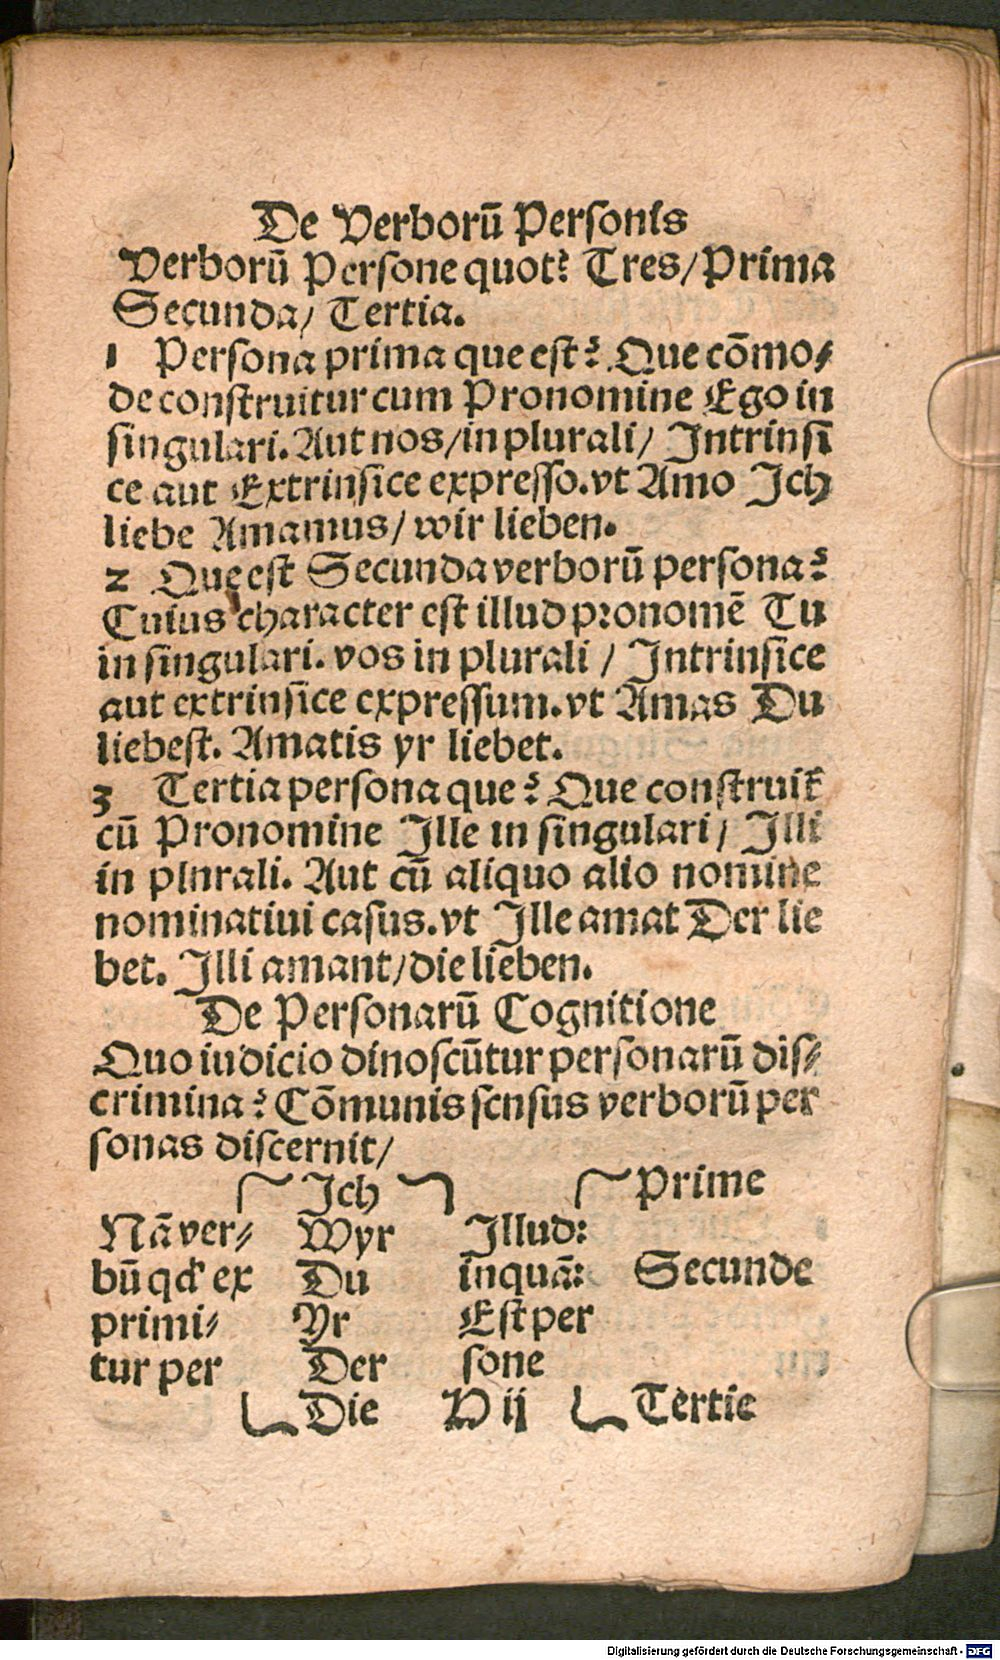 De Verborū Personis
Verborū Persone quot? Tres/Prima
Secunda/ Tertia.
1 Persona prima que est? Que cōmo-
de construitur cum Pronomine Ego in
singulari. Aut nos/in plurali/ Intrinsi
ce aut Extrinsice expresso. vt Amo Ich
liebe Amamus/ wir lieben.
2 Que est Secunda verborū persona?
Cuius character est illud pronomē Tu
in singulari. vos in plurali / Intrinsice
aut extrinsice expressum. vt Amas Du
liebest. Amatis yr liebet.
3 Tertia persona que? Que construit̄
cū Pronomine Ille in singulari/ Illi
in plnrali. Aut cū aliquo alio nomine
nominatiui casus. vt Ille amat Der lie
bet. Illi amant/die lieben.
De Personarū Cognitione
Quo iudicio dinoscūtur personarū dis-
crimina? Cōmunis sensus verborū per
sonas discernit/
Ich Prime
Nā ver- Wyr Illud:
bū qd' ex Du inquā: Secunde
primi- Yr Est per
tur per Der sone
Die D ij Tertie
Digitalisierung gefördert durch die Deutsche Forschungsgemeinschaft - DFG